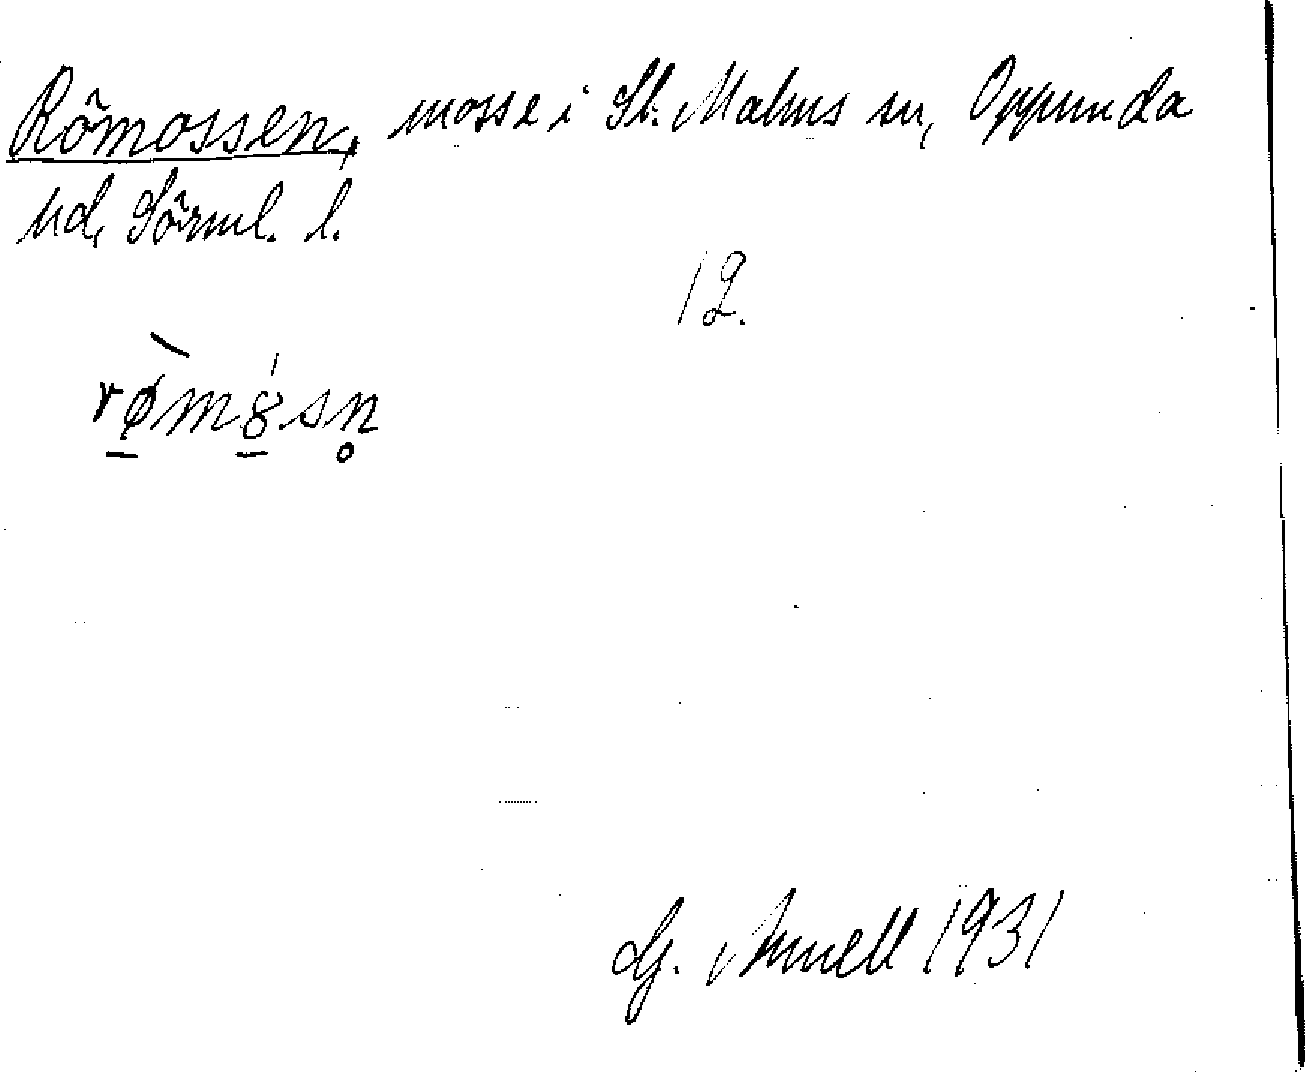 Römossen, mosse i St. Malms sn, Oppunda
hd, Sörml. l.
12.
rømȣsn̥
G. Arnell 1931